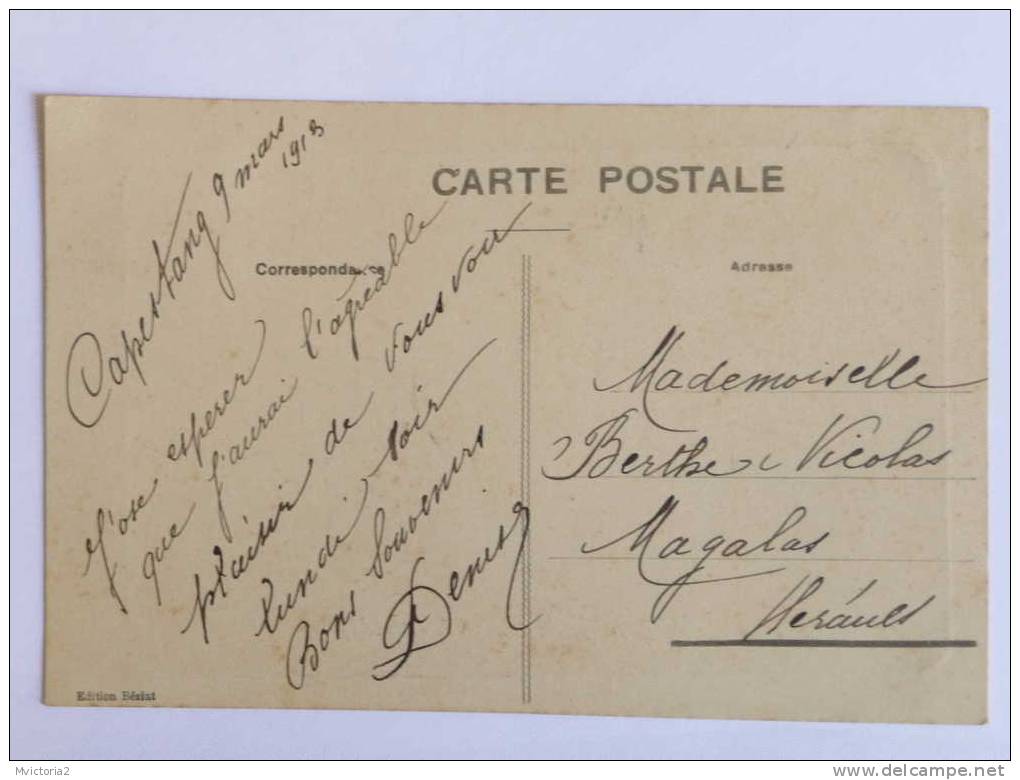 CARTE POSTALE
Correspondance
Adresse
Capestang 9 mars
1913
J'ose esperer
que j'aurai l'agréable
plaisir de vous voir
lundi soir
Bons Souvenirs
Mademoiselle
Berthe Nicolas
Magalas
Herault
Edition Béziat
Mvictoria2
delcampe.net